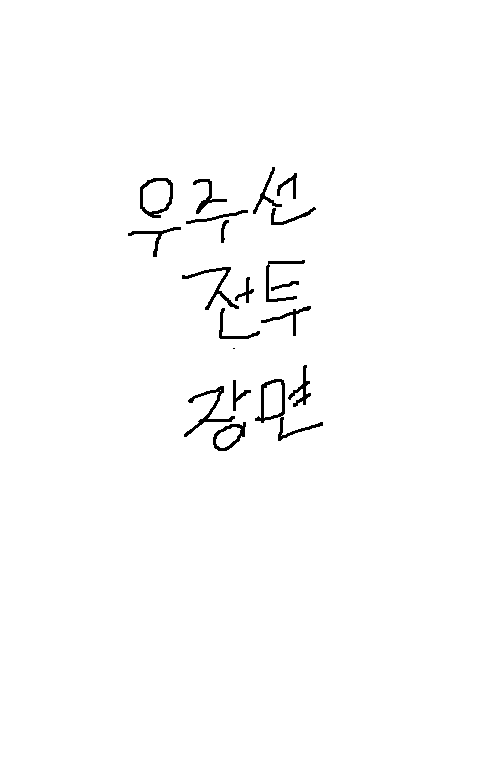 우주선
전투
장면